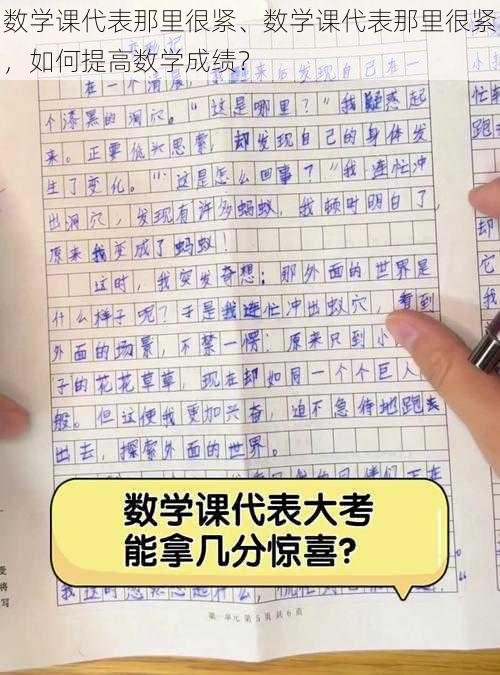 数学课代表那里很紧、数学课代表那里很紧
，如何提高数学成绩？
个漆黑的洞穴。“这是哪里？”我疑惑起
来。正要低头思索，却发现自己的身体发
生了变化。“这是怎么回事？”我连忙冲
出洞穴，发现有许多蚂蚁，我顿时明白了，
原来我变成了蚂蚁！
这时，我突发奇想：那外面的世界是
什么样子呢？于是我连忙冲出蚁穴，看到
外面的场景，不禁一愣：原来只到小
子的花花草草，现在却如同一个个巨人
般。但这使我更加兴奋，迫不急待地跑去
出去，探索外面的世界。
数学课代表大考
能拿几分惊喜？
第一单元 第 5 页 共 6 页
忙
跑
却
它
我